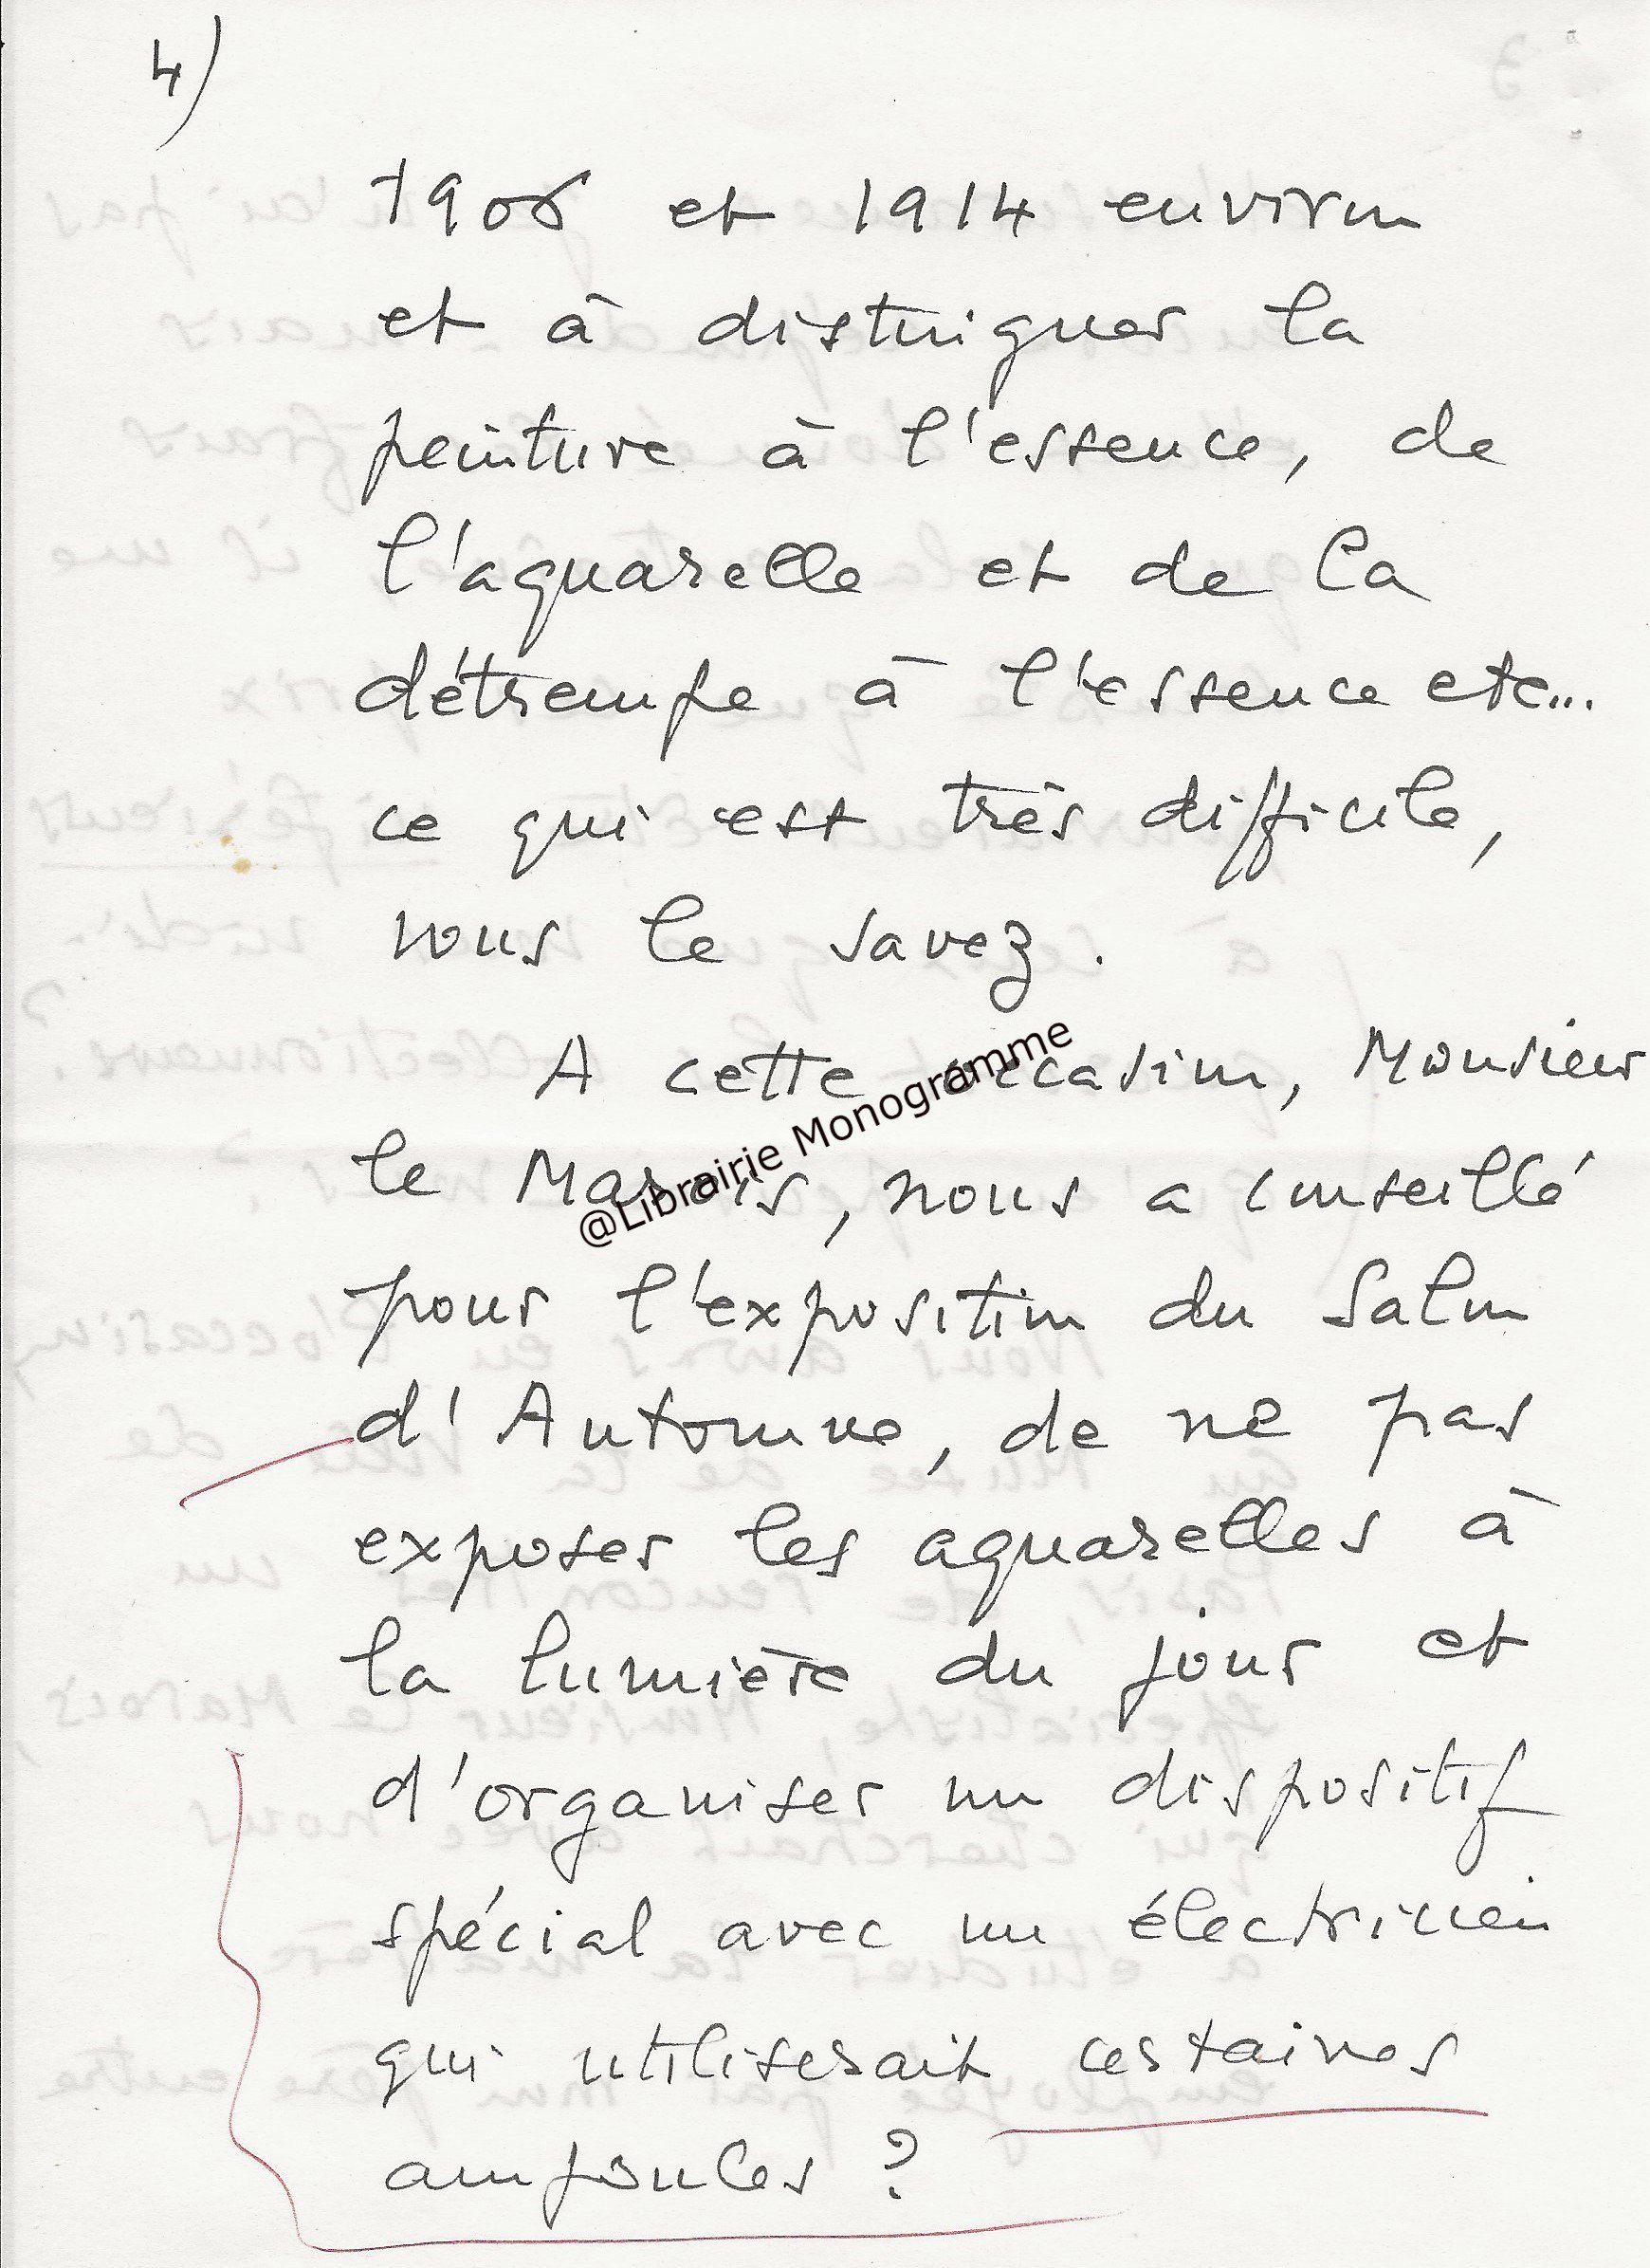 4)
1906 et 1914 environ
et à distinguer la
peinture à l'essence, de
l'aquarelle et de la
détrempe à l'essence etc...
ce qui est très difficile,
vous le savez.
A cette occasion, Monsieur
le Marois, nous a conseillé
@Librairie Monogramme
pour l'exposition du Salon
d'Automne, de ne pas
exposer les aquarelles à
la lumière du jour et
d'organiser un dispositif
spécial avec un électricien
qui utiliserait certaines
ampoules ?